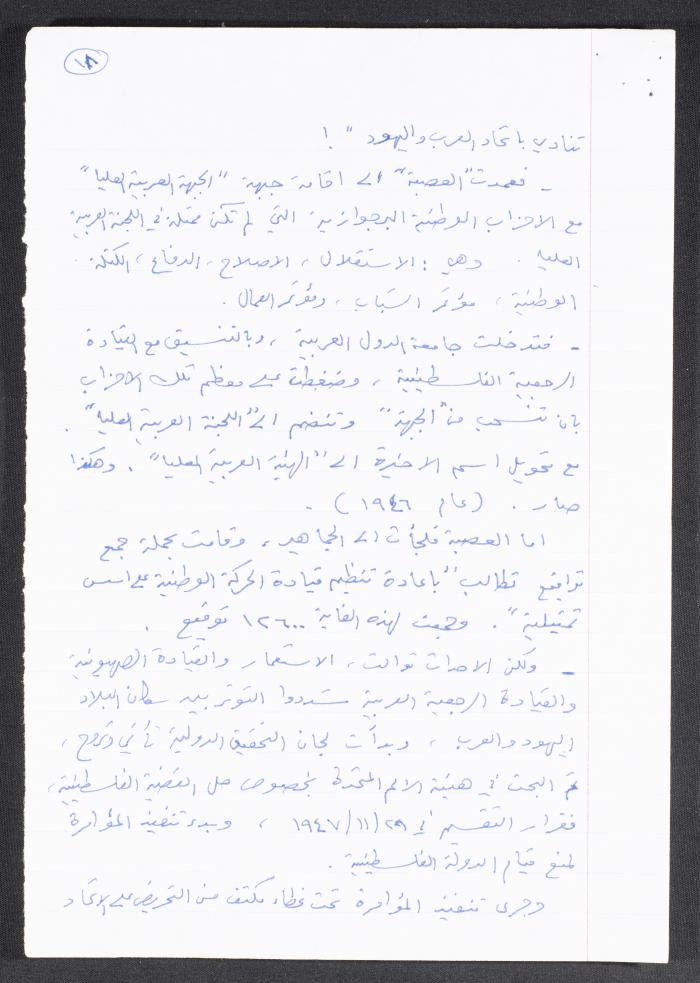 ١٨
تنادي باتحاد العرب واليهود " !
- فعمدت "العصبة" الى اقامة جبهة "الجبهة العربية العليا"
مع الاحزاب الوطنية البرجوازية التي لم تكن ممثلة في اللجنة العربية
العليا . وهي : الاستقلال ، الاصلاح ، الدفاع ، الكتلة
الوطنية ، مؤتمر الشباب ، ومؤتمر العمال .
- فتدخلت جامعة الدول العربية ، وبالتنسيق مع القيادة
الرجعية الفلسطينية ، وضغطت على معظم تلك الاحزاب
بان تنسحب من "الجبهة" وتنضم الى "اللجنة العربية العليا" .
مع تحويل اسم الاخيرة الى "الهيئة العربية العليا" . وهكذا
صار . (عام ١٩٤٦) .
اما العصبة فلجأت الى الجماهير ، وقامت بحملة جمع
تواقيع تطالب "باعادة تنظيم قيادة الحركة الوطنية على اسس
تمثيلية" . وجمعت لهذه الغاية ١٢٦٠٠ توقيع .
- ولكن الاحداث توالت ، الاستعمار والقيادة الصهيونية
والقيادة الرجعية العربية شددوا التوتر بين سكان البلاد
اليهود والعرب ، وبدأت لجان التحقيق الدولية تأتي وتروح ،
ثم البحث في هيئة الامم المتحدة بخصوص حل القضية الفلسطينية ،
فقرار التقسيم في ٢٩/١١/١٩٤٧ ، وبدء تنفيذ المؤامرة
لمنع قيام الدولة الفلسطينية .
وجرى تنفيذ المؤامرة تحت غطاء مكثف من التحريض على الاتحاد